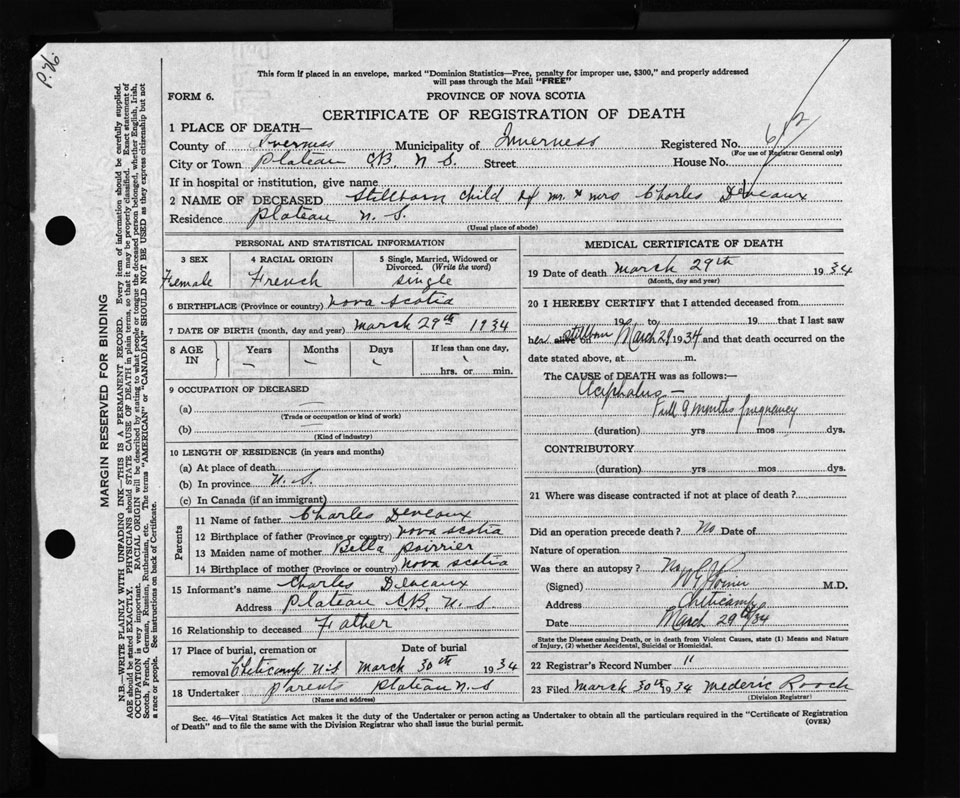 P.N.
This form if placed in an envelope, marked "Dominion Statistics—Free, penalty for improper use, $300," and properly addressed
will pass through the Mail "FREE"
FORM 6.
PROVINCE OF NOVA SCOTIA
CERTIFICATE OF REGISTRATION OF DEATH
1 PLACE OF DEATH—
County of Inverness Municipality of Inverness Registered No. 612
(For use of Registrar General only)
City or Town Plateau C.B. N.S. Street House No.
If in hospital or institution, give name
2 NAME OF DECEASED Stillborn child of Mr. & Mrs Charles Deveaux
Residence Plateau N. S.
(Usual place of abode)
PERSONAL AND STATISTICAL INFORMATION
3 SEX 4 RACIAL ORIGIN 5 Single, Married, Widowed or
Divorced. (Write the word)
Female French single
6 BIRTHPLACE (Province or country) Nova Scotia
7 DATE OF BIRTH (month, day and year) March 29th 1934
8 AGE IN Years Months Days If less than one day,
hrs. or min.
9 OCCUPATION OF DECEASED
(a)
(Trade or occupation or kind of work)
(b)
(Kind of industry)
10 LENGTH OF RESIDENCE (in years and months)
(a) At place of death
(b) In province N.S.
(c) In Canada (if an immigrant)
Parents
11 Name of father Charles Deveaux
12 Birthplace of father (Province or country) Nova Scotia
13 Maiden name of mother Bella Poirrier
14 Birthplace of mother (Province or country) Nova Scotia
15 Informant's name Charles Deveaux
Address Plateau C.B. N.S.
16 Relationship to deceased Father
17 Place of burial, cremation or Date of burial
removal Cheticamp N.S March 30th 1934
18 Undertaker Parent Plateau N.S
(Name and address)
MEDICAL CERTIFICATE OF DEATH
19 Date of death March 29th 1934
(Month, day and year)
20 I HEREBY CERTIFY that I attended deceased from
19 to 19 that I last saw
h alive on stillborn March 29 1934 and that death occurred on the
date stated above, at m.
The CAUSE of DEATH was as follows:—
Acephalus —
Full 9 months pregnancy
(duration) yrs mos dys.
CONTRIBUTORY
(duration) yrs mos dys.
21 Where was disease contracted if not at place of death?
Did an operation precede death? No Date of
Nature of operation
Was there an autopsy? No
(Signed) M.D.
Address Cheticamp
Date March 29th/34
State the Disease causing Death, or in death from Violent Causes, state (1) Means and Nature
of Injury, (2) whether Accidental, Suicidal or Homicidal.
22 Registrar's Record Number 11
23 Filed March 30th 1934 Mederic Roach
(Division Registrar)
Sec. 46—Vital Statistics Act makes it the duty of the Undertaker or person acting as Undertaker to obtain all the particulars required in the "Certificate of Registration
of Death" and to file the same with the Division Registrar who shall issue the burial permit. (OVER)
MARGIN RESERVED FOR BINDING
N.B.—WRITE PLAINLY WITH UNFADING INK—THIS IS A PERMANENT RECORD. Every item of information should be carefully supplied.
AGE should be stated EXACTLY. PHYSICIANS should STATE CAUSE OF DEATH in plain terms, so that it may be properly classified. Exact statement of
OCCUPATION is very important. RACIAL ORIGIN will be described by stating to what people or tongue the deceased person belonged, whether English, Irish,
Scotch, French, German, Russian, Ruthenian, etc. The terms "AMERICAN" or "CANADIAN" SHOULD NOT BE USED as they express citizenship but not
a race or people. See instructions on back of Certificate.